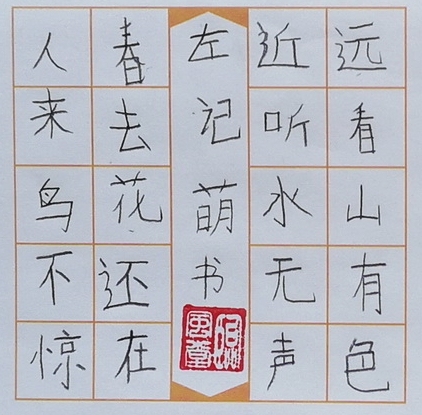 远看山有色
近听水无声
左记萌书
春去花还在
人来鸟不惊